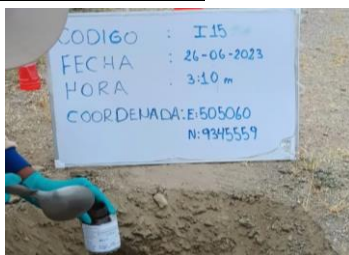 CODIGO : I15
FECHA : 26-06-2023
HORA : 3:10 m
COORDENADA: E: 505060
N: 9345559